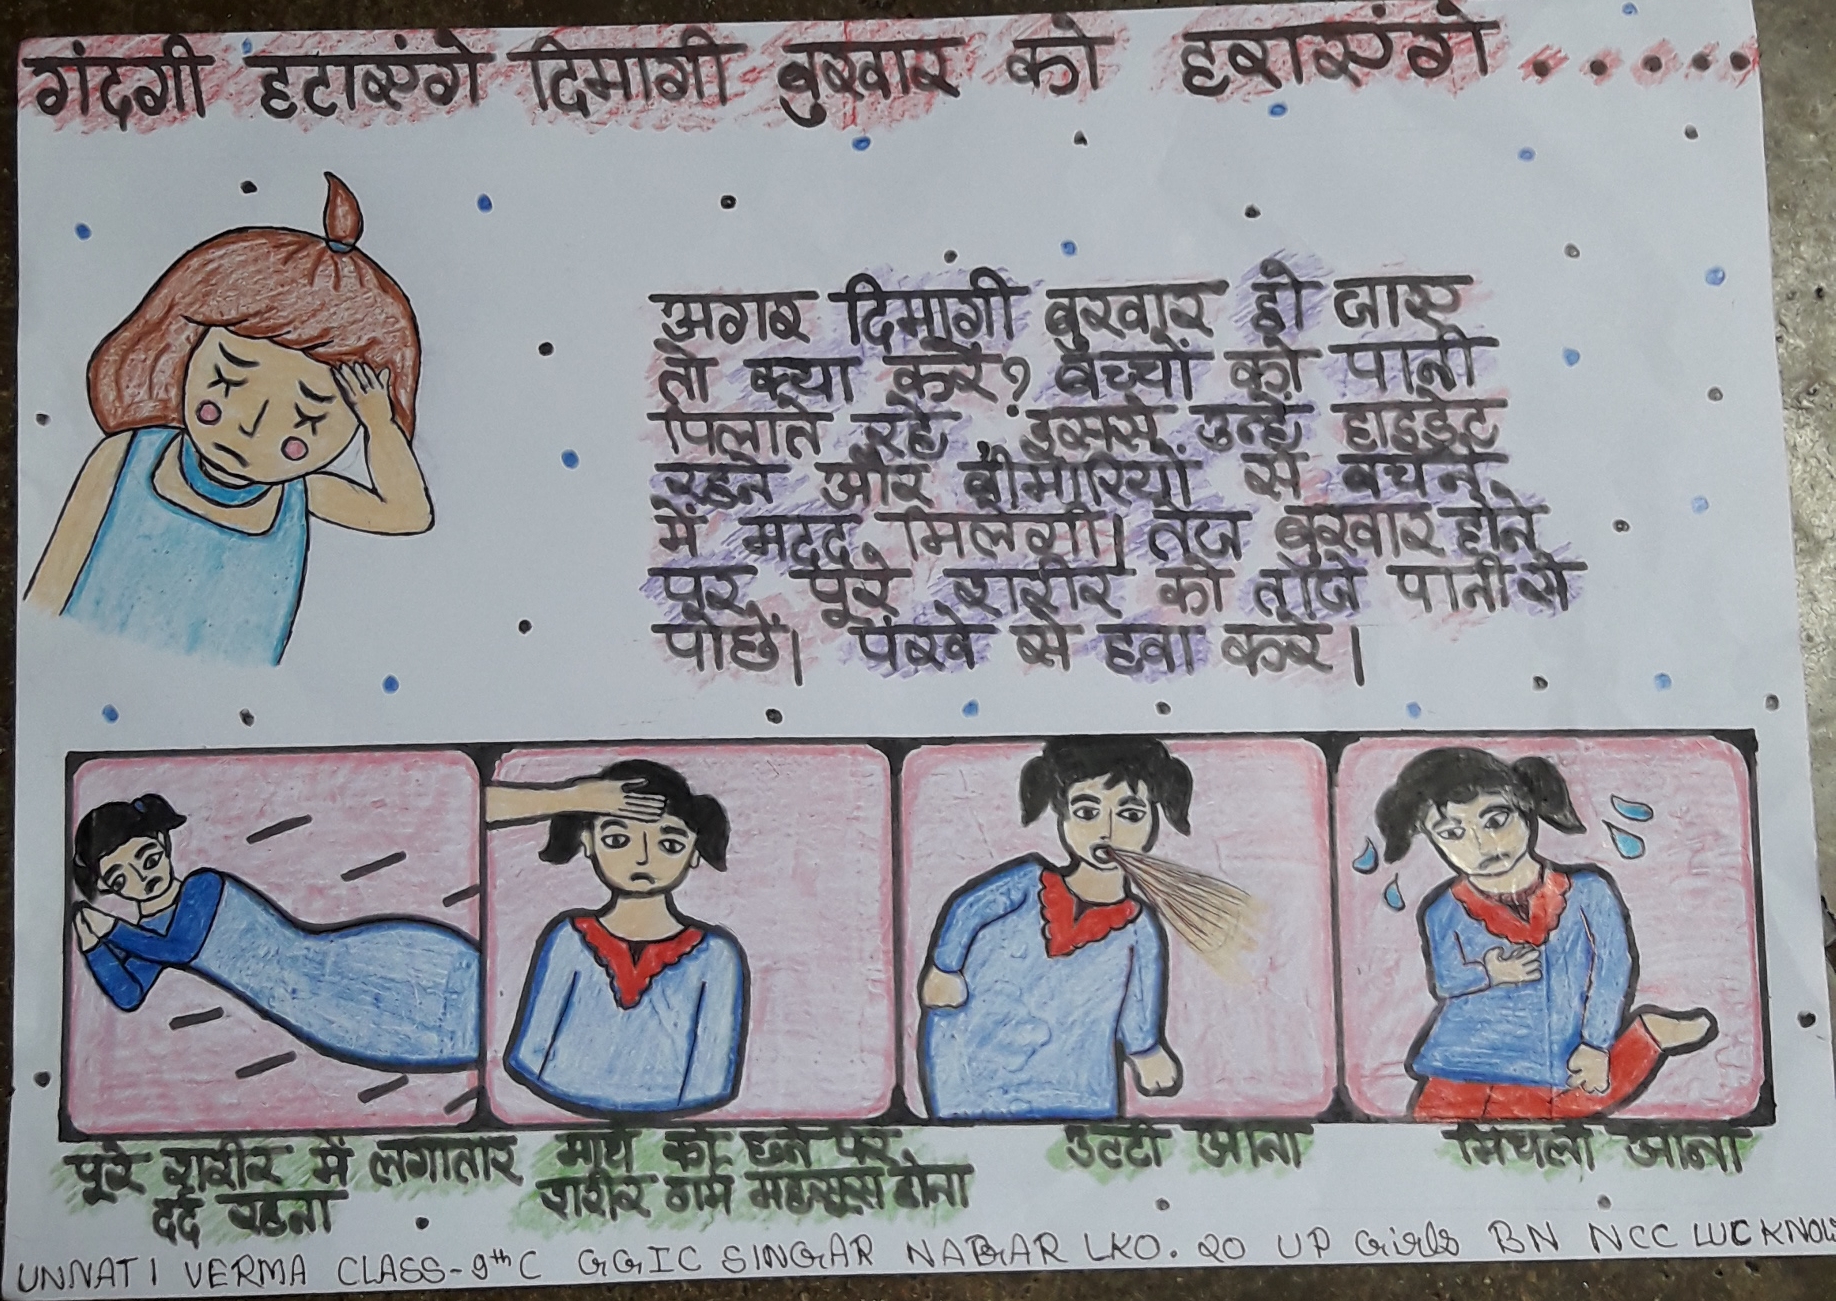 गंदगी हटाएंगे दिमागी बुखार को हराएंगे.....
अगर दिमागी बुखार हो जाए
तो क्या करें? बच्चों को पानी
पिलाते रहें इससे उन्हें हाइड्रेट
रहने और बीमारियों से बचने
में मदद मिलेगी। तेज बुखार होने
पर पूरे शरीर को ताजे पानी से
पोछें। पंखे से हवा करें।
पूरे शरीर में लगातार
दर्द रहना
माथे को छूने पर
शरीर गर्म महसूस होना
उल्टी आना
मिचली आना
UNNATI VERMA CLASS-9th C GGIC SINGAR NAGAR LKO. 20 UP Girls BN NCC LUCKNOW